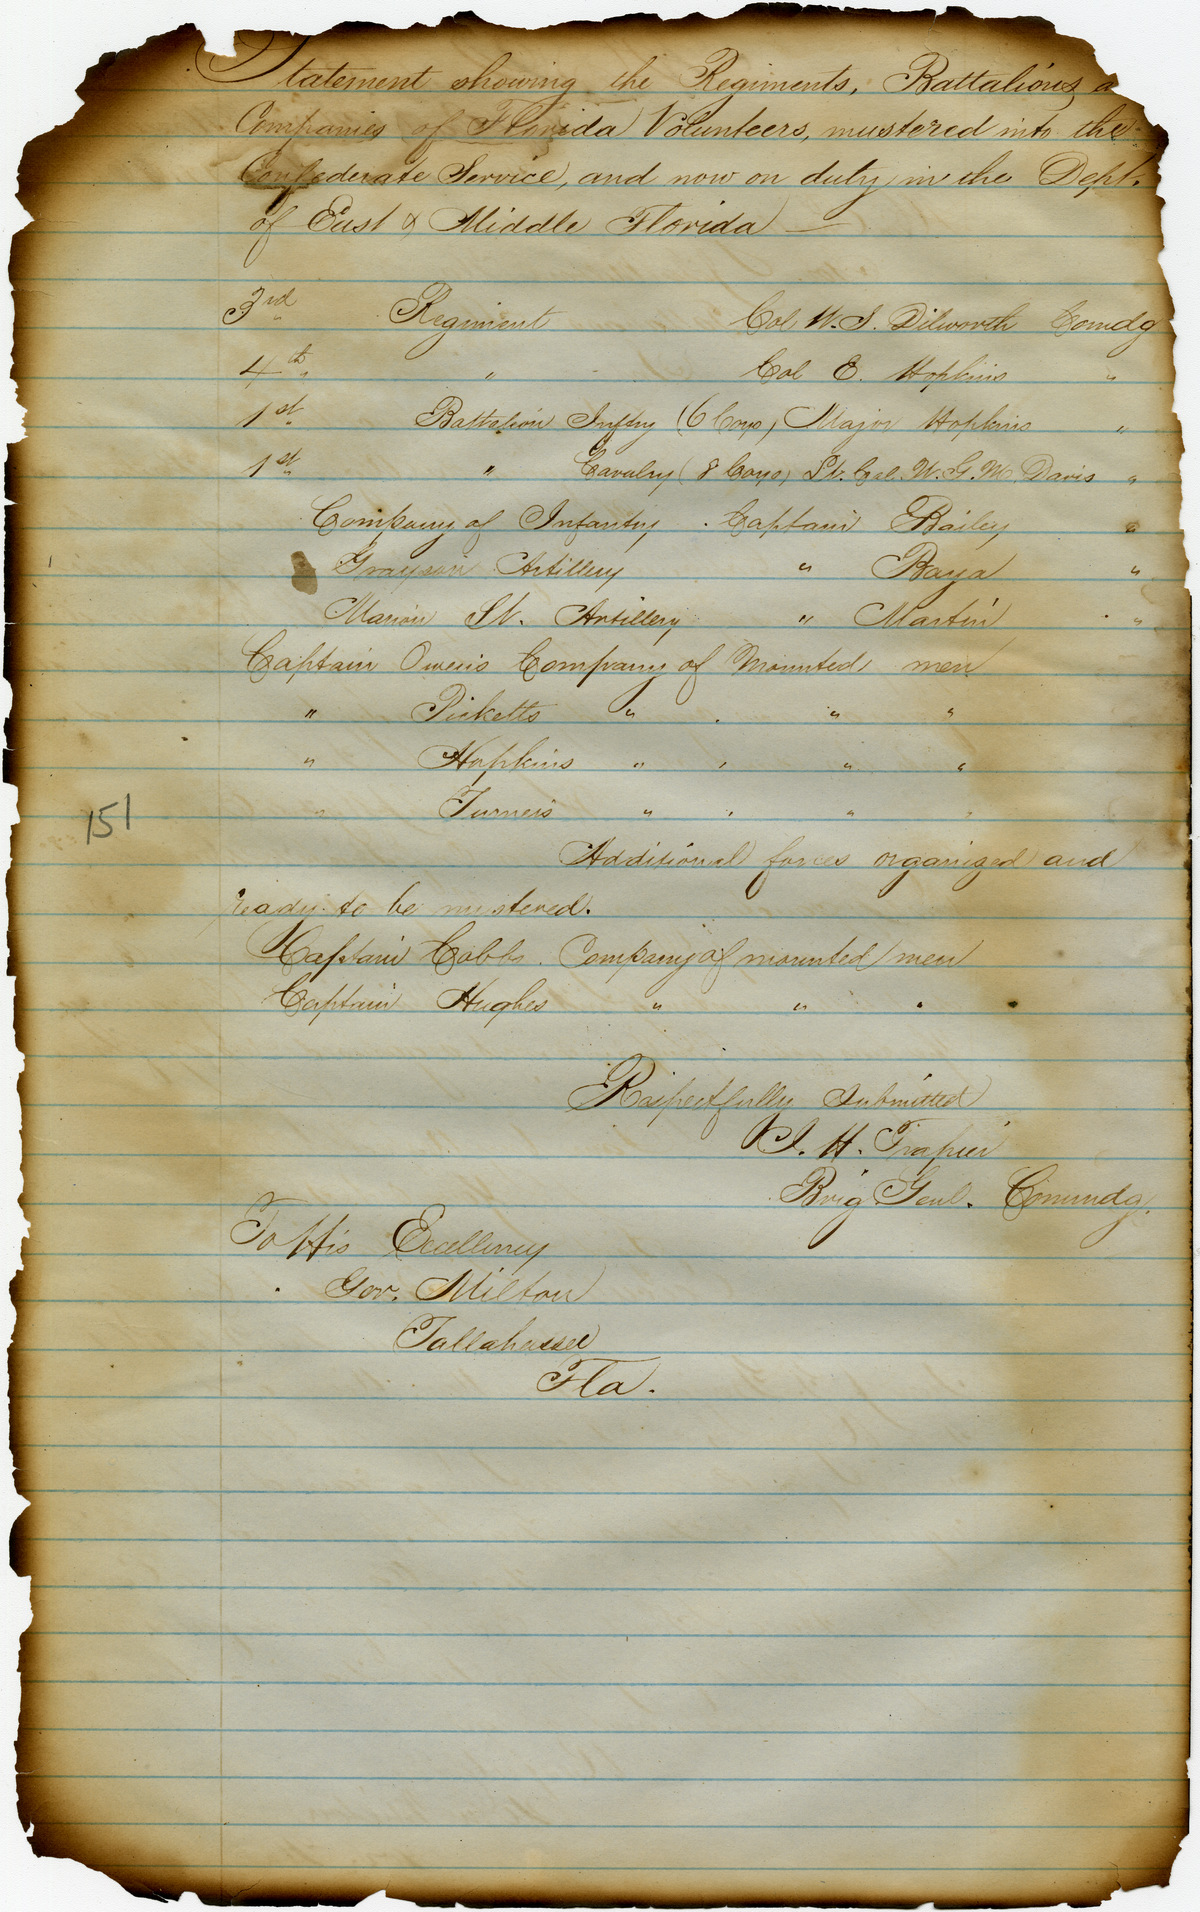 Statement showing the Regiments, Battalions, a
Companies of Florida Volunteers, mustered into the
Confederate Service, and now on duty in the Dept.
of East & Middle Florida —
3rd Regiment Col W. S. Dilworth Comdg
4th " Col E. Hopkins "
1st Battalion Inftry (6 Coys) Major Hopkins "
1st " Cavalry (8 Coys) Lt. Col. W. G. M. Davis "
Company of Infantry . Captain Bailey "
Grayson Artillery " Baya "
Marion Lt. Artillery " Martin "
Captain Owens Company of Mounted men
" Picketts " " "
" Hopkins " " "
" Turners " " "
Additional forces organized and
ready to be mustered.
Captain Cobbs Company of mounted men
Captain Hughes " " "
Respectfully Submitted
J. H. Trapier
Brig Genl. Commdg.
To His Excellency
Gov. Milton
Tallahassee
Fla.
151